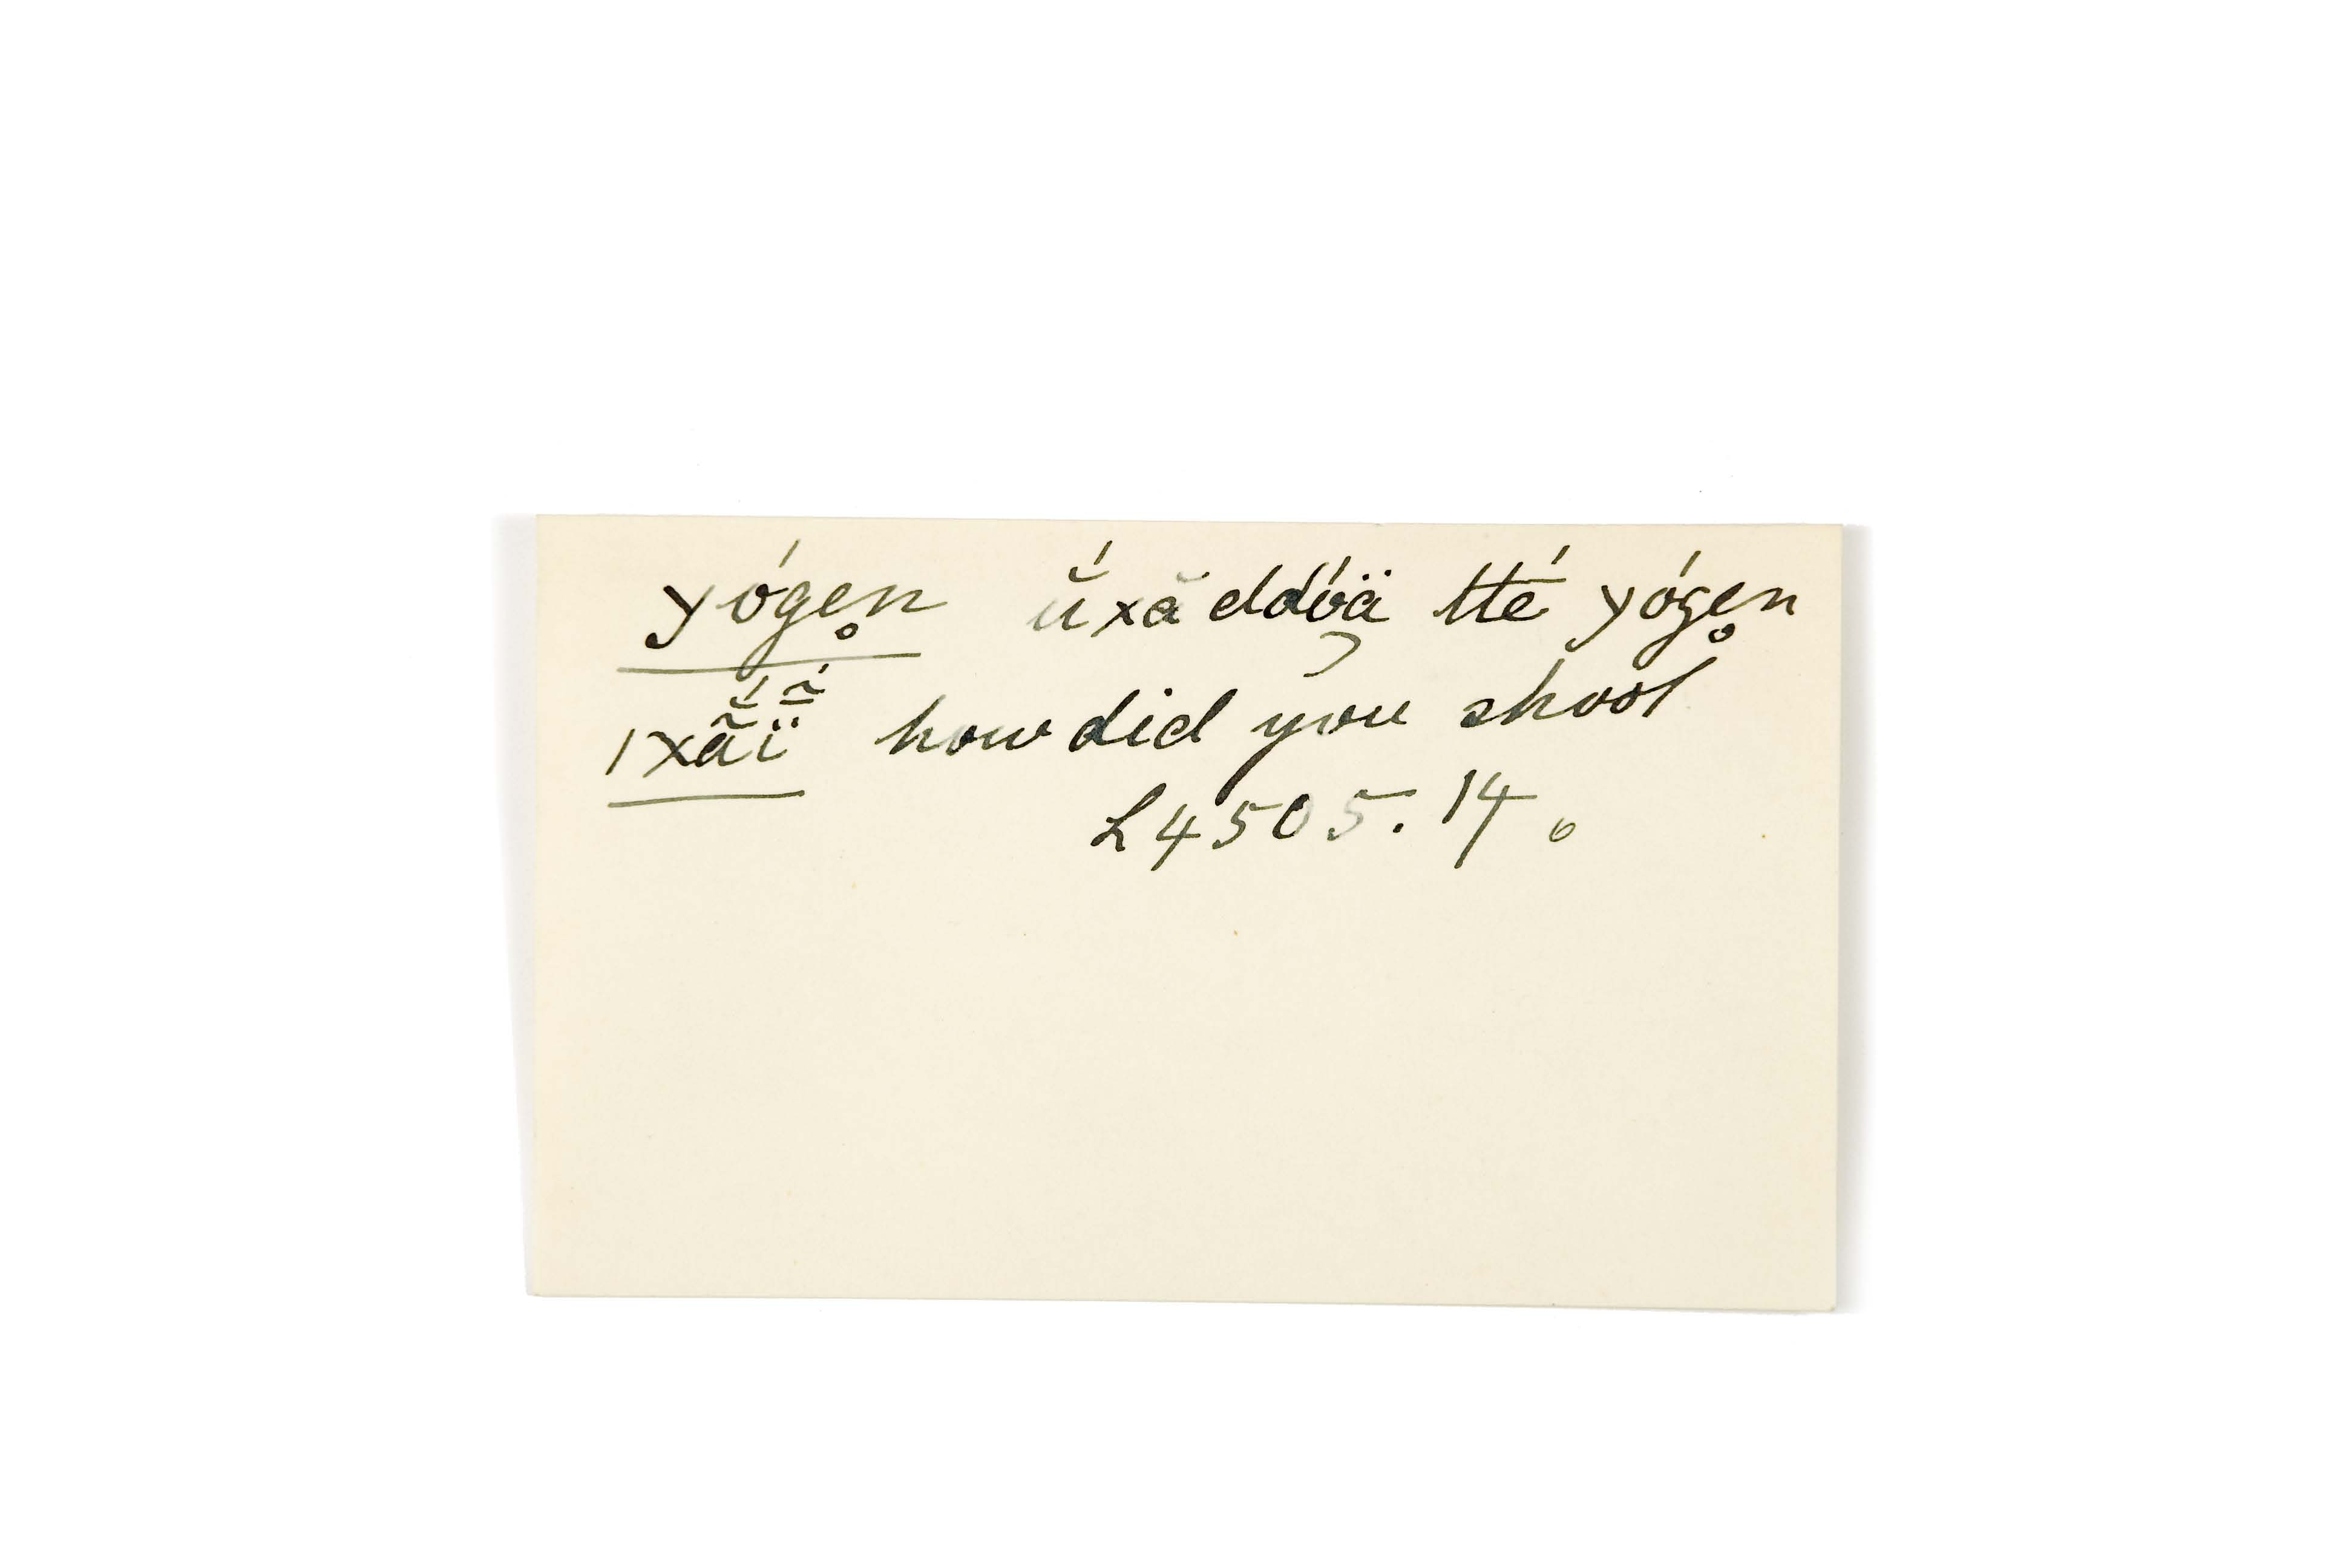 yóge̥n ṹxă ddóä tté yóge̥n
ıxã̆́ï̃́ how did you shoot
L4505.14.